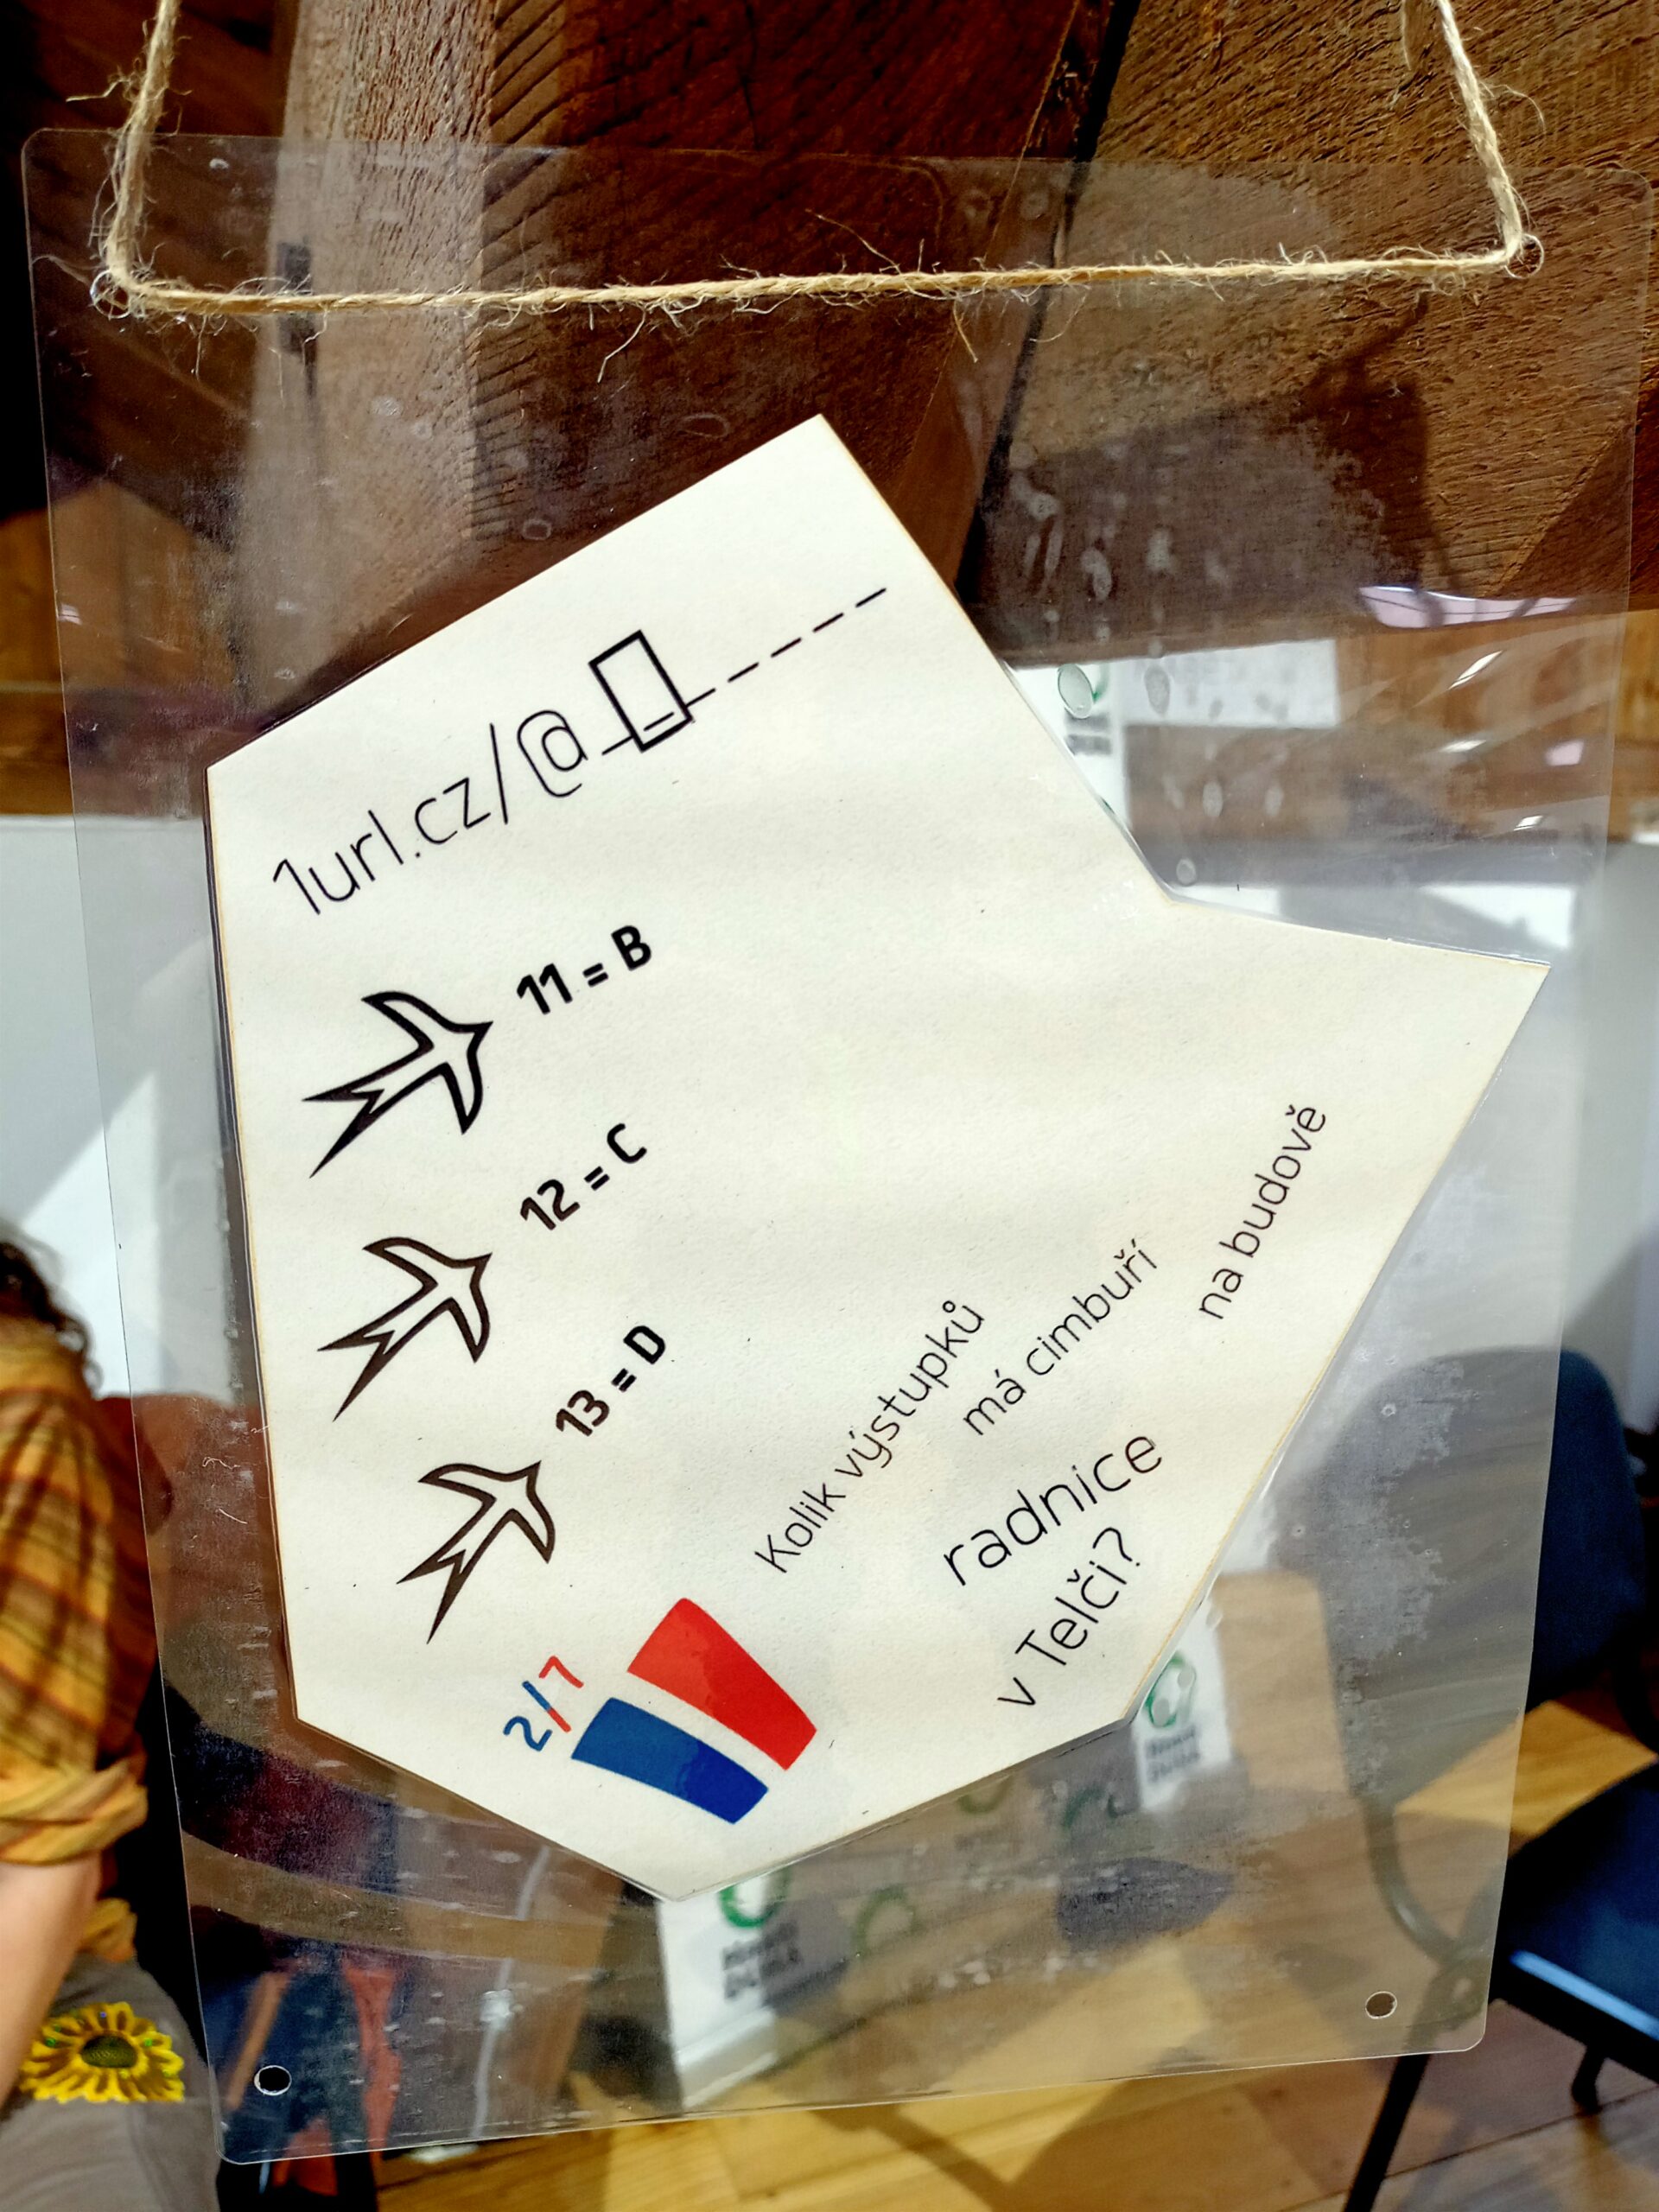 1url.cz/@_ _ _ _ _ _ _
11 = B
12 = C
13 = D
2/7
Kolik výstupků
má cimbuří
na budově
radnice
v Telči?